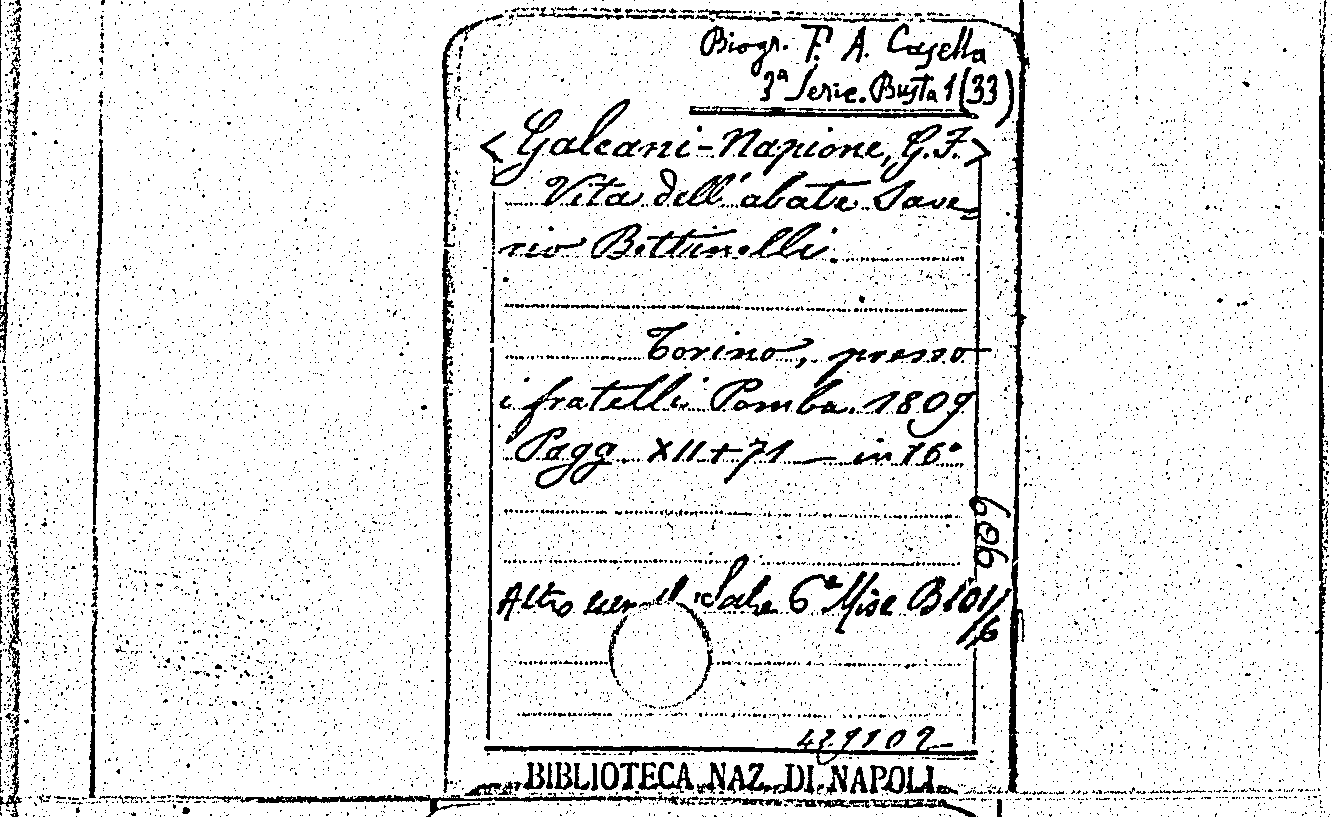 Biogr. F. A. Casella
3ª Serie. Busta 1 (33)
<Galeani-Napione, G.F.>
Vita dell'abate Save=
rio Bettinelli.
Torino, presso
i fratelli Pomba. 1809
Pagg. XII+71 — in 16°
609
Altro Sala 6ª Misc B 101/6
BIBLIOTECA NAZ. DI NAPOLI